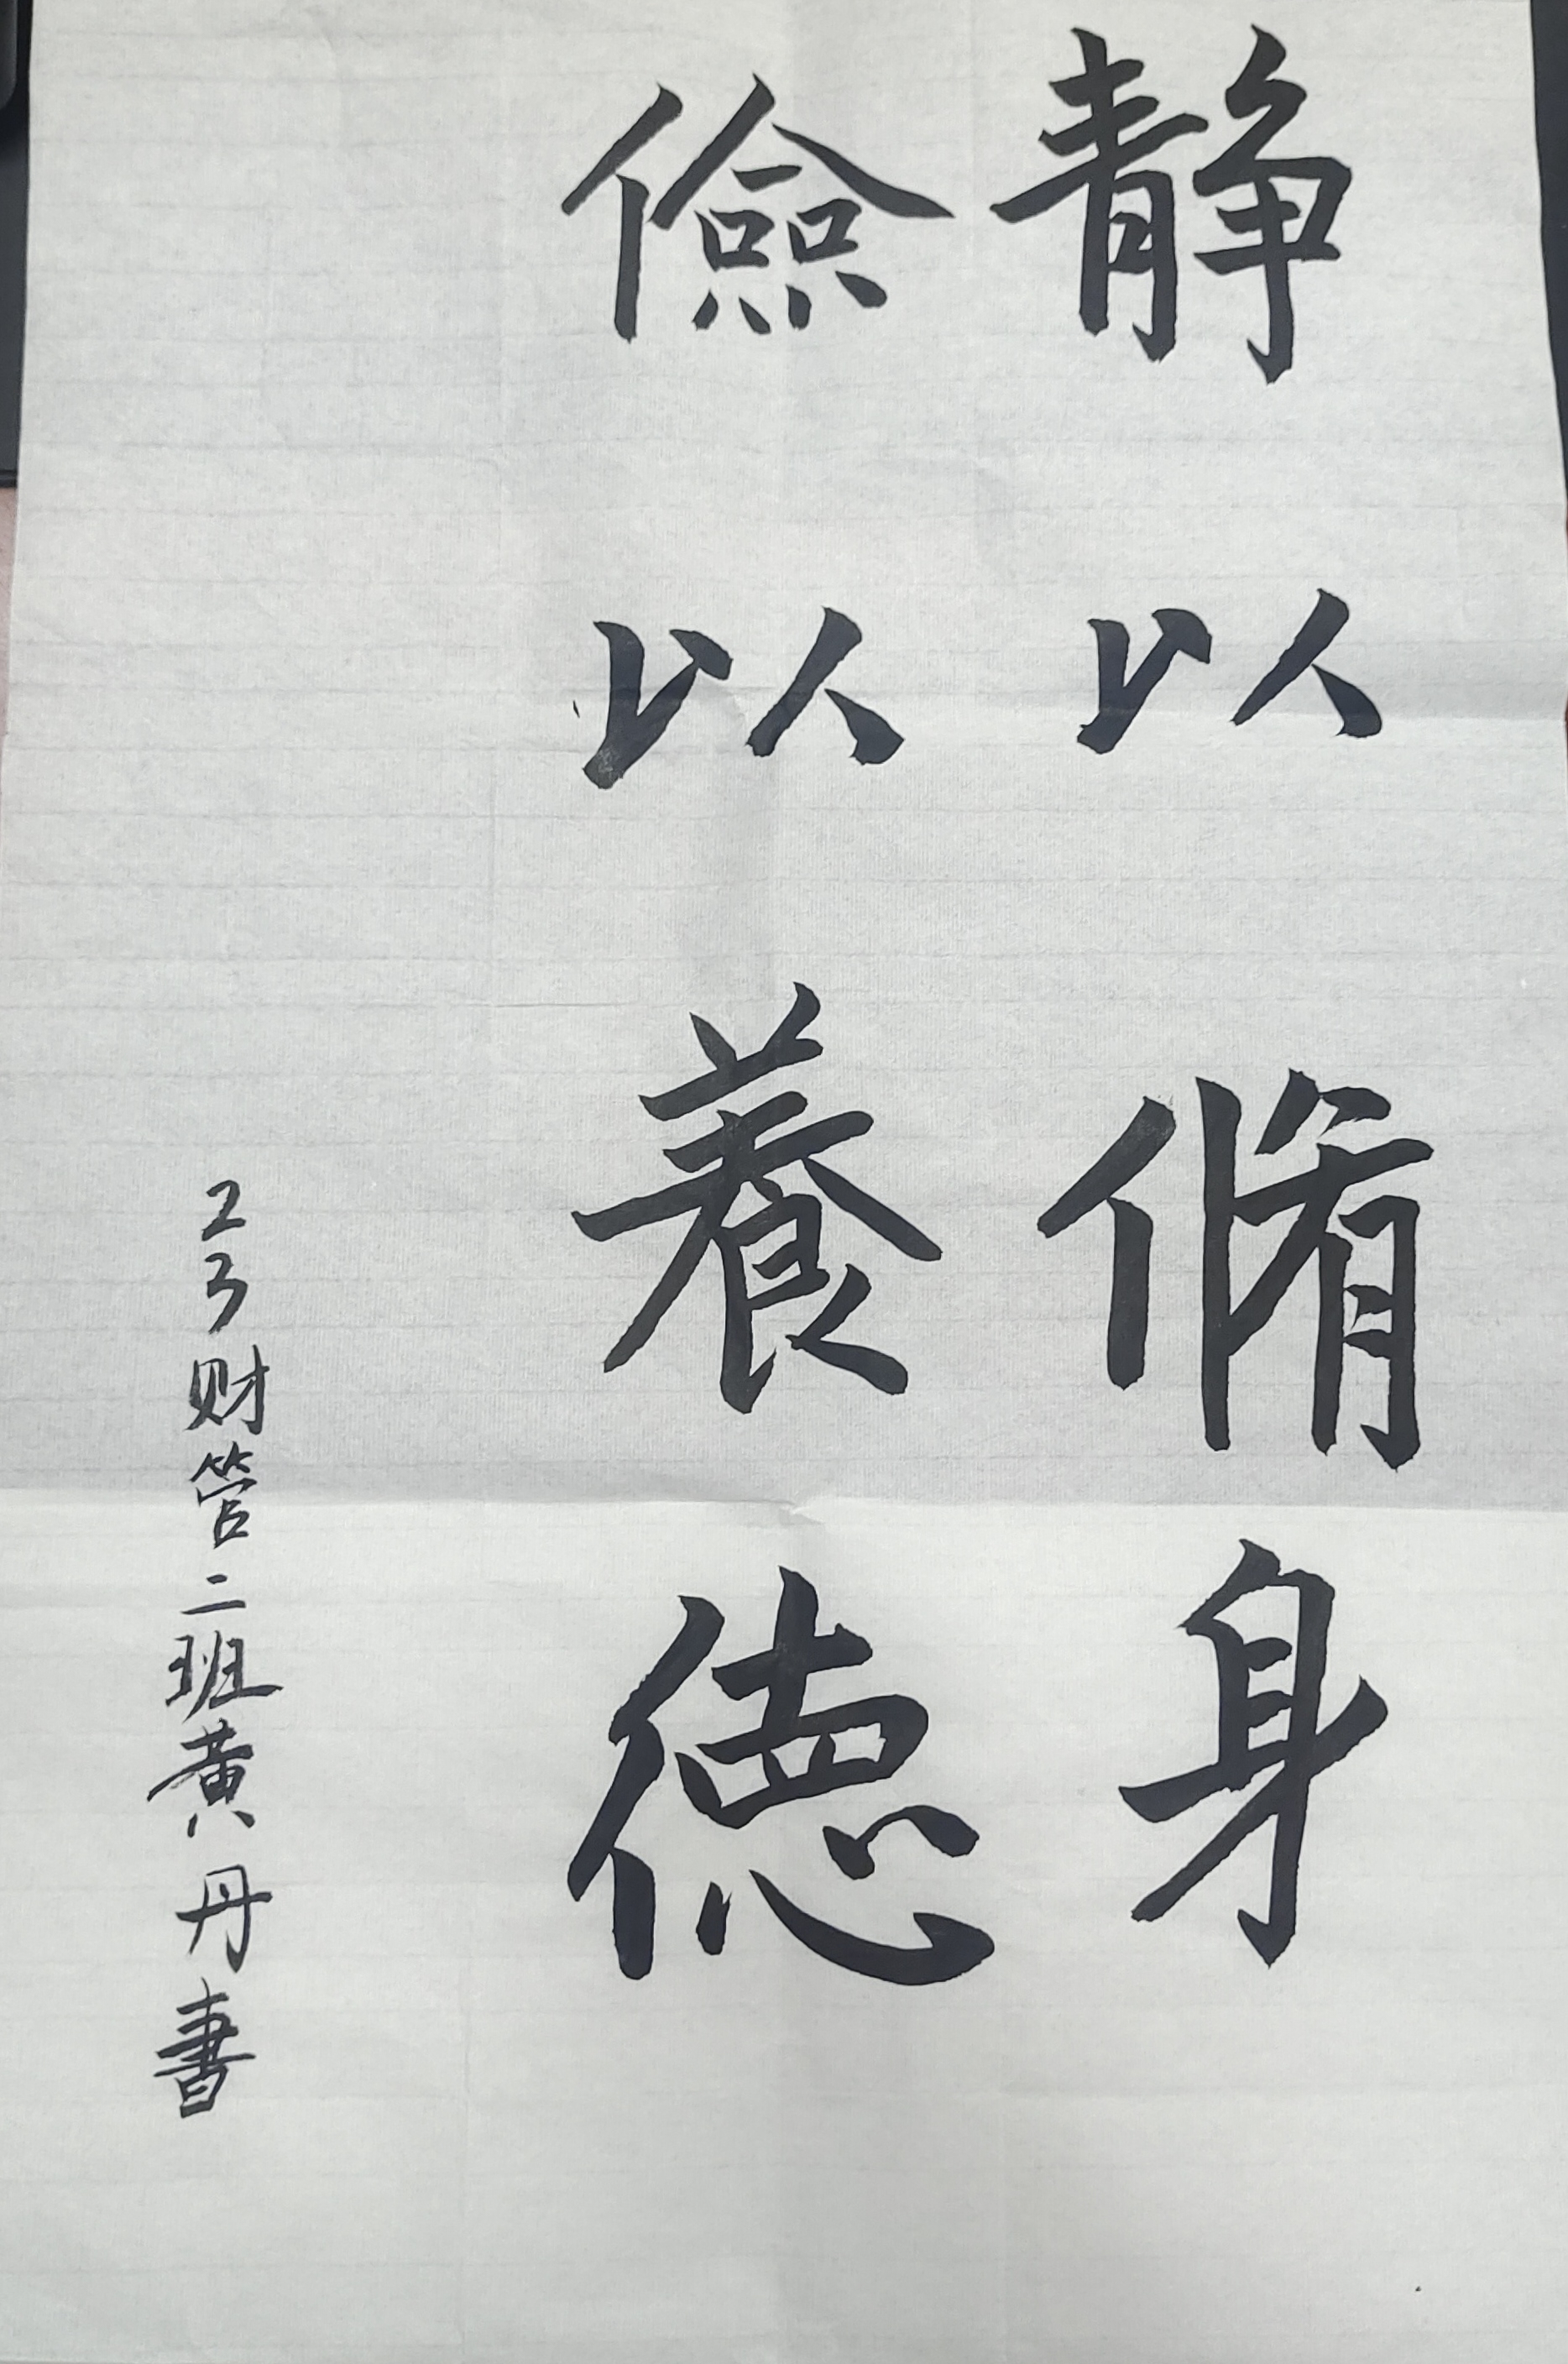 静以脩身
儉以養德
23财管二班黄丹書